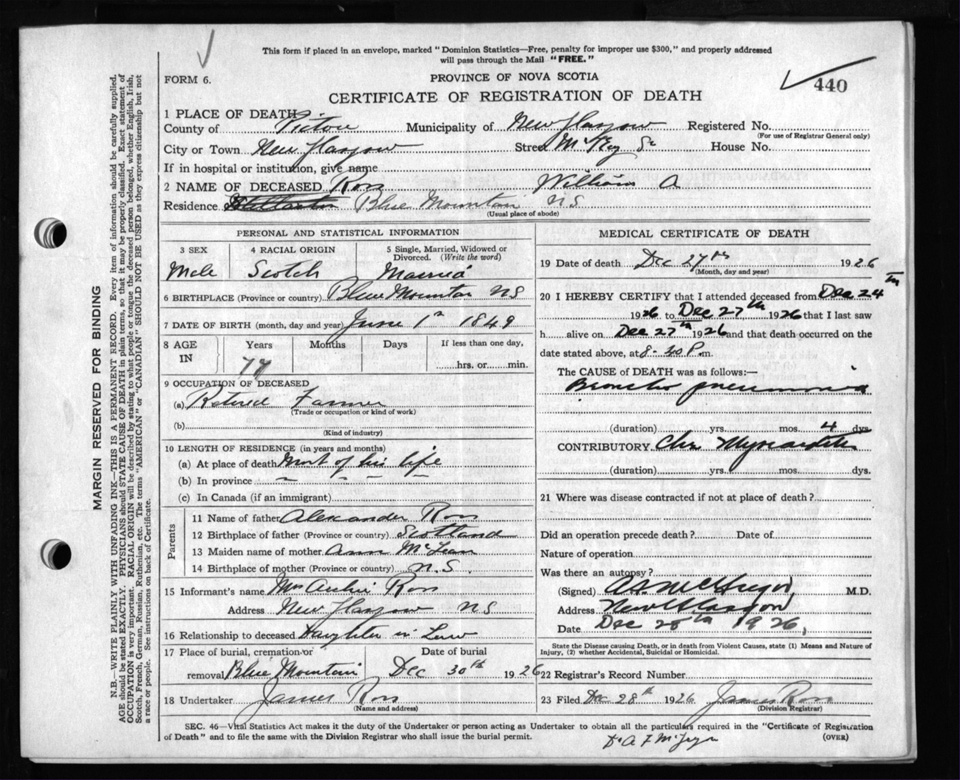 This form if placed in an envelope, marked "Dominion Statistics—Free, penalty for improper use $300," and properly addressed
will pass through the Mail "FREE."
FORM 6.
PROVINCE OF NOVA SCOTIA
440
CERTIFICATE OF REGISTRATION OF DEATH
1 PLACE OF DEATH
County of Pictou Municipality of New Glasgow Registered No.
(For use of Registrar General only)
City or Town New Glasgow Street House No.
If in hospital or institution, give name
2 NAME OF DECEASED Ross William A
Residence Blue Mountain N S
(Usual place of abode)
PERSONAL AND STATISTICAL INFORMATION
3 SEX 4 RACIAL ORIGIN 5 Single, Married, Widowed or
Divorced. (Write the word)
Male Scotch Married
6 BIRTHPLACE (Province or country) Blue Mountain NS
7 DATE OF BIRTH (month, day and year) June 1st 1849
8 AGE IN Years Months Days If less than one day,
77 hrs. or min.
9 OCCUPATION OF DECEASED
(a) Retired Farmer
(Trade or occupation or kind of work)
(b)
(Kind of industry)
10 LENGTH OF RESIDENCE (in years and months)
(a) At place of death Most of his life
(b) In province " " " "
(c) In Canada (if an immigrant)
Parents
11 Name of father Alexander Ross
12 Birthplace of father (Province or country) Scotland
13 Maiden name of mother Ann McLean
14 Birthplace of mother (Province or country) N.S.
15 Informant's name Mrs Ross
Address New Glasgow NS
16 Relationship to deceased Daughter in Law
17 Place of burial, cremation or removal Date of burial
Blue Mountain Dec 30th 1926
18 Undertaker James Ross
(Name and address)
MEDICAL CERTIFICATE OF DEATH
19 Date of death Dec 27th 1926
(Month, day and year)
20 I HEREBY CERTIFY that I attended deceased from Dec 24th
1926 to Dec 27th 1926 that I last saw
h alive on Dec 27th 1926 and that death occurred on
date stated above, at 8-30 P.m.
The CAUSE of DEATH was as follows:—
Broncho pneumonia
(duration) yrs. mos. 4 dys
CONTRIBUTORY Chr Myocarditis
(duration) yrs. mos. dys.
21 Where was disease contracted if not at place of death?
Did an operation precede death? Date of
Nature of operation
Was there an autopsy?
(Signed) M.D.
Address New Glasgow
Date Dec 28th 1926,
State the Disease causing Death, or in death from Violent Causes, state (1) Means and Nature of
Injury, (2) whether Accidental, Suicidal or Homicidal.
22 Registrar's Record Number
23 Filed Dec 28th 1926 James Ross
(Division Registrar)
SEC. 46—Vital Statistics Act makes it the duty of the Undertaker or person acting as Undertaker to obtain all the particulars required in the "Certificate of Registration
of Death" and to file the same with the Division Registrar who shall issue the burial permit.
(OVER)
MARGIN RESERVED FOR BINDING
N.B.—WRITE PLAINLY WITH UNFADING INK—THIS IS A PERMANENT RECORD. Every item of information should be carefully supplied.
AGE should be stated EXACTLY. PHYSICIANS should STATE CAUSE OF DEATH in plain terms, so that it may be properly classified. Exact statement of
OCCUPATION is very important. RACIAL ORIGIN will be described by stating to what people or tongue the deceased person belonged, whether English, Irish,
Scotch, French, German, Russian, Ruthenian, etc. The terms "AMERICAN" or "CANADIAN" SHOULD NOT BE USED as they express citizenship but not
a race or people. See instructions on back of Certificate.